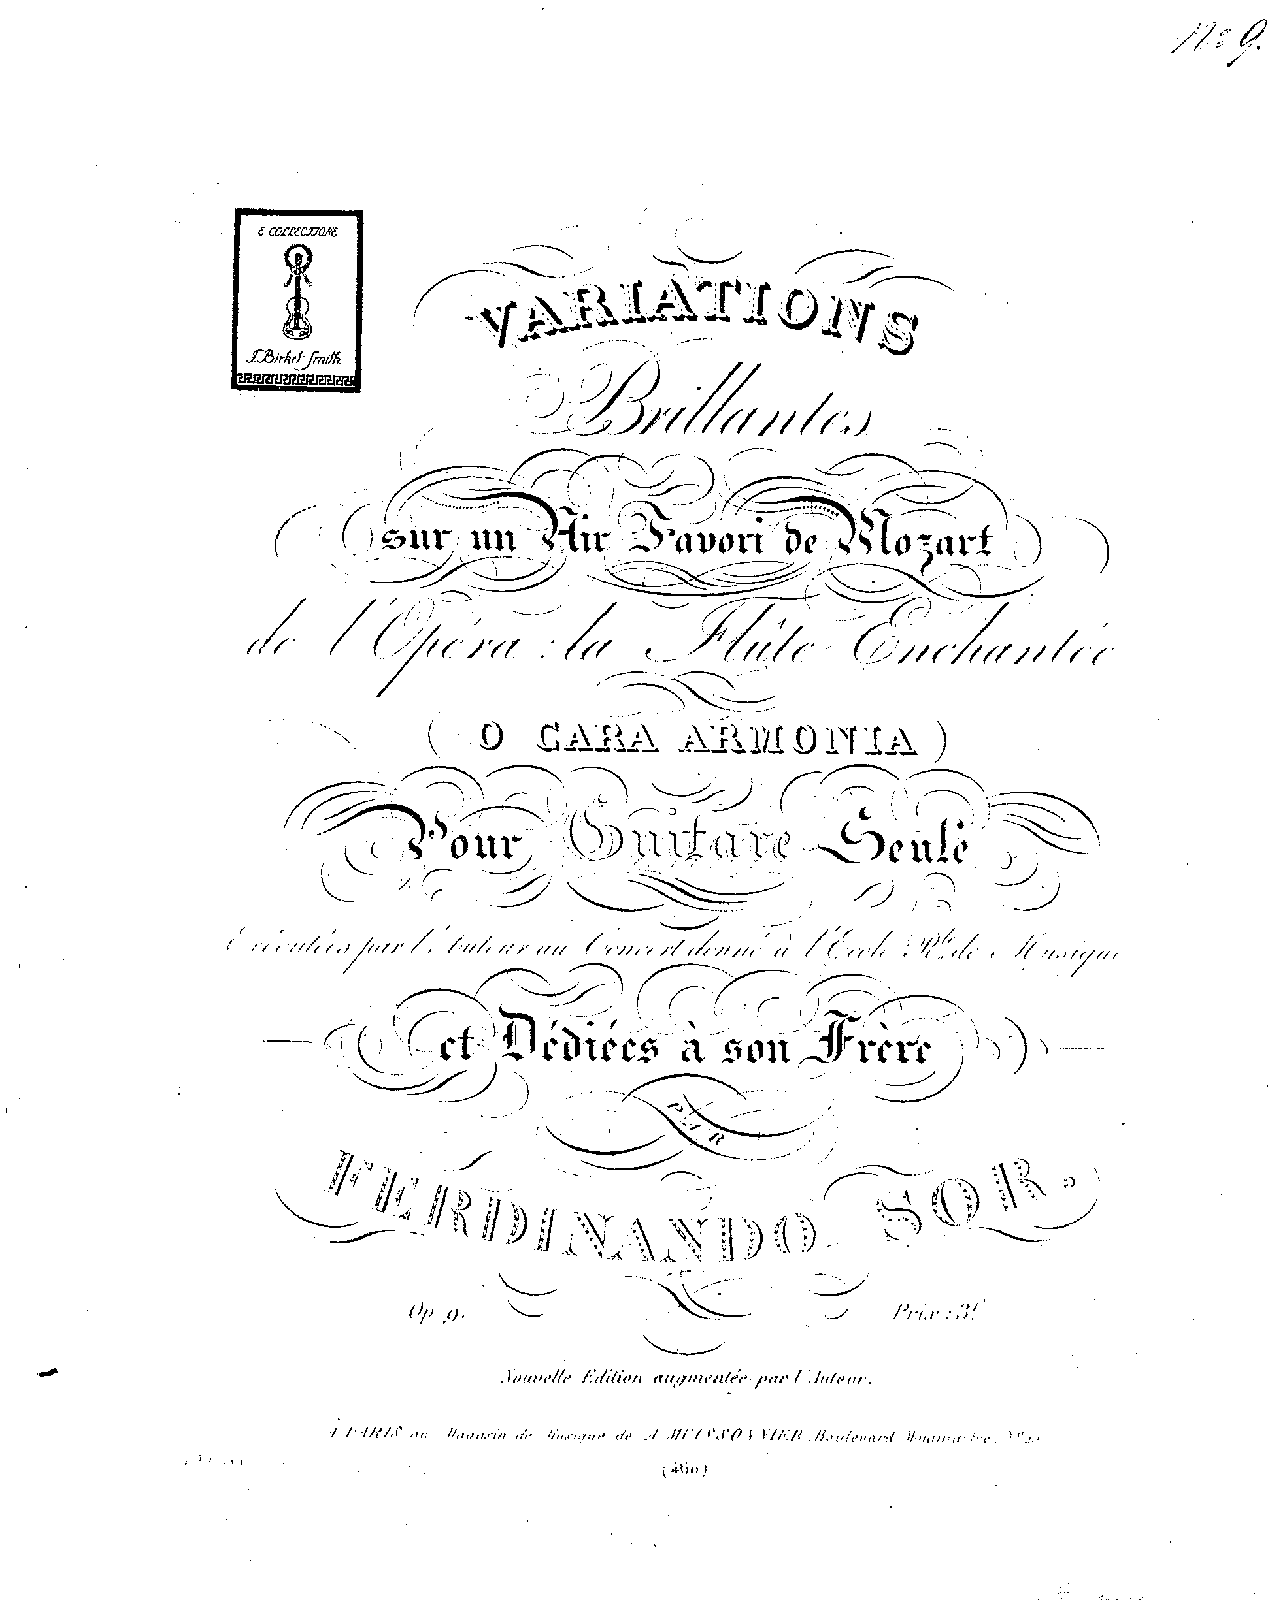 No 9.
E COLLECTIONE
J. Birket-Smith
VARIATIONS
Brillantes
sur un Air Favori de Mozart
de l'Opéra : la Flûte Enchantée
( O CARA ARMONIA )
Pour Guitare Seule
Exécutées par l'Auteur au Concert donné à l'École Rle. de Musique
et Dédiées à son Frère
PAR
FERDINANDO SOR.
Op. 9. Prix : 3f
Nouvelle Edition augmentée par l'Auteur.
À PARIS au Magasin de Musique de A. MEISSONNIER, Boulevard Montmartre,